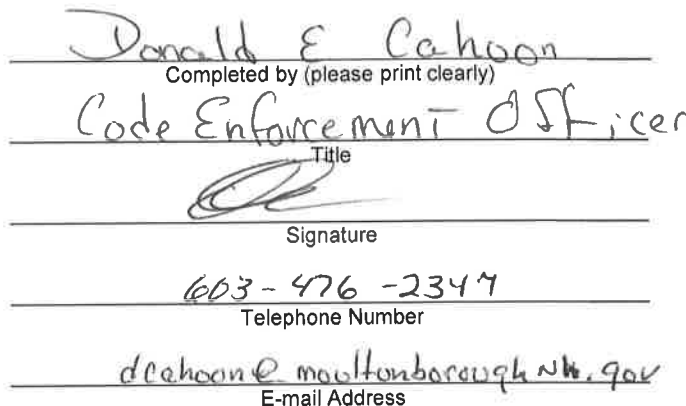 Donald E Cahoon
Completed by (please print clearly)
Code Enforcement Officer
Title
Signature
603-476-2347
Telephone Number
dcahoon@moultonboroughnh.gov
E-mail Address